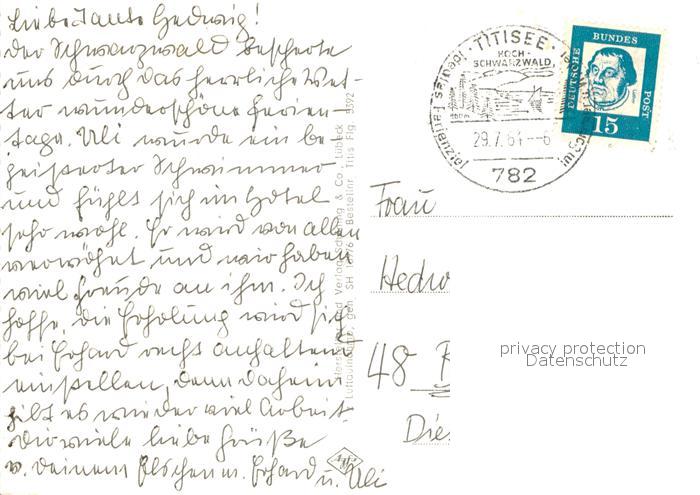 Liebe Tante Hedwig!
Der Schwarzwald bescherte
uns durch das herrliche Wet-
ter wunderschöne Ferien-
tage. Uli wurde ein be-
geisterter Schwimmer
und fühlt sich im Hotel
sehr wohl. Er wird von allen
verwöhnt und wir haben
viel Freude an ihm. Ich
hoffe, die Erholung wird sich
bei Erhard recht anhaltend
einstellen, denn daheim
gibt es wieder viel Arbeit.
Dir viele liebe Grüße
v. Deinem Elschen m. Erhard u. Uli
Verlag Schöning & Co., Lübeck
Luftaufnahme, gen. SH Bestellnr. Titis Frg 5392
TITISEE
HOCH-
SCHWARZWALD
29.7.64--6
782
DEUTSCHE BUNDESPOST
15
Frau
Hedw
48
Die
privacy protection
Datenschutz